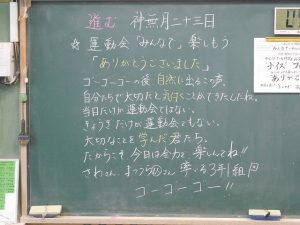 進む 神無月二十三日
☆ 運動会「みんなで」楽しもう
「ありがとうございました」
ゴーゴーゴーの後 自然に出るこの声。
自分たちで大切だと気付くことができたんだね。
当日だけが運動会ではない。
きょうぎだけが運動会でもない。
大切なことを学んだ君たち。
だからこそ 今日は全力で 楽しんでね!!
さわさん、まつうら さん 率いる3年1組
ゴーゴーゴー!!
ナイスフ
ありがとう